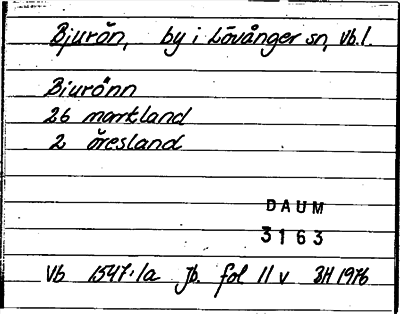 Bjurön, by i Lövånger sn, Vb.l.
Biurönn
26 markland
2 öresland
DAUM
3163
Vb 1547:1a Jb. fol 11 v BH 1976